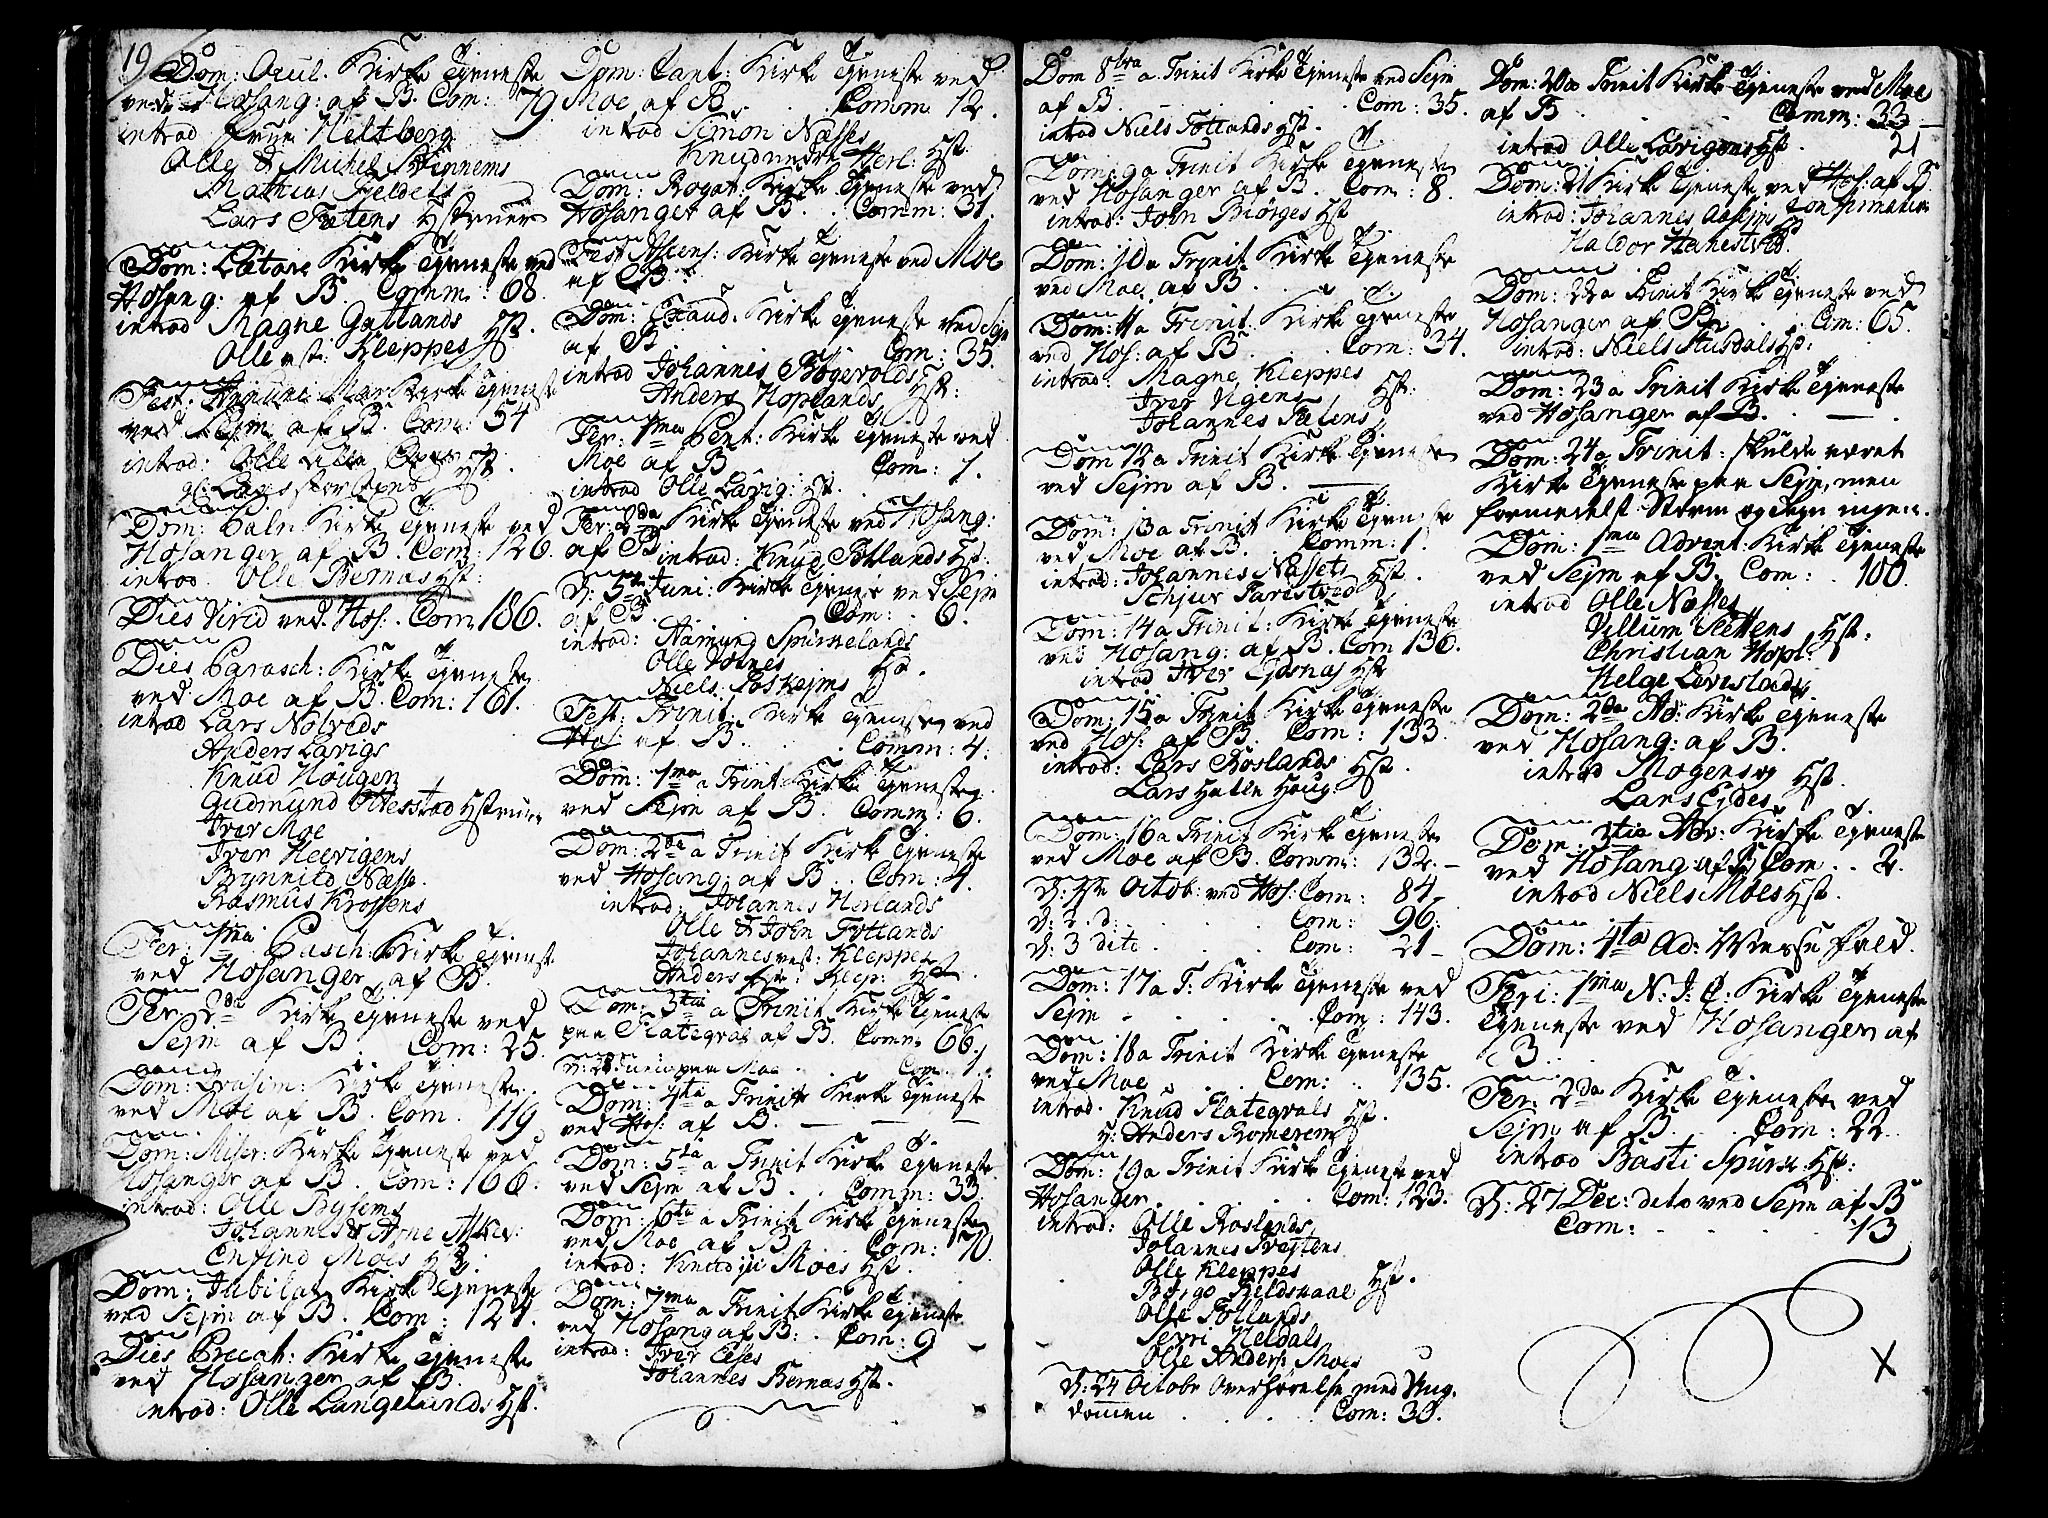 19
Dom: Ocul. Kirke Tjeneste
ved Hosang: af B. Com: 79
introd Frue Heltberg
Olle & Michel
Mathias Fjeldets
Lars Tistens Hstruer
Dom: Lætare Kirke Tjeneste ved
Hosang: af B. Comm: 68.
introd Magne Gatlands
Olle vst: Kleppes Hst.
Fest: Annunc Mar Kirke Tjeneste
ved Sejm af B. Com: 54
introd: Olle
Lars Hst.
Dom: Palm Kirke Tjeneste ved
Hosanger af B. Com: 126.
introd. Olle Bernas Hst:
Dies Virid ved Hos: Com 186.
Dies Parasch: Kirke Tjeneste
ved Moe af B. Com: 161.
introd Lars Notveds
Anders Lavigs
Knud Hougen
Gudmund Otterstad Hstruer
Iver Moe
Iver Helvigens
Brynnild Næsse.
Rasmus Krossens
Fer: 1ma Pasch: Kirke Tjeneste
ved Hosanger af B.
Fer: 2da Kirke Tjeneste ved
Sejm af B Com: 25.
Dom: Quasim: Kirke Tjeneste
ved Moe af B. Com. 119
Dom: Miser: Kirke Tjeneste ved
Hosanger af B. Com: 166.
introd: Olle Bysems
Johannes & Arne
Enfind Moes H
Dom: Jubilat Kirke Tjeneste
ved Sejm af B. Com: 121.
Dies Precat: Kirke Tjeneste
ved Hosanger af B.
introd: Olle Langelunds Hst.
Dom: Cant: Kirke Tjeneste ved
Moe af B. Comm 12.
introd Simon Næsses
Knud nedre Herl: Hst.
Dom: Rogat: Kirke Tjeneste ved
Hosanger af B. Comm: 31.
Fest Ascens: Kirke Tjeneste ved Moe
af B.
Dom: Exaud. Kirke Tjeneste ved Sejm
af B Com: 35.
introd Johannes Bogevolds
Anders Hoplands Hst:
Fer: 1ma Pent: Kirke Tjeneste ved
Moe af B Com: 1.
introd Olle Lavig: Hst.
Fer: 2da Kirke Tjeneste ved Hosang:
af B introd: Knud Totlands Hst:
D: 5te Juni: Kirke Tjeneste ved Sejm
af B. Com: 6.
introd: Aamund Spurvelands
Olle Votnes Hst.
Niels Røskejms
Fest: Trinit. Kirke Tjeneste ved
Hos: af B. Comm: 4.
Dom: 1ma a Trinit Kirke Tjeneste
ved Sejm af B. Comm: 6.
Dom: 2da a Trinit Kirke Tjeneste
ved Hosang: af B. Com: 4.
introd: Johannes Herlands
Olle & Joen Totlands
Johannes vest: Kleppe
Anders Klep: Hst.
Dom: 3tia a Trinit Kirke Tjeneste
paa Flategral af B. Comm: 66.
paa Moe Com: 1.
Dom: 4ta a Trinit: Kirke Tjeneste
ved Hos: af B.
Dom: 5ta a Trinit Kirke Tjeneste
ved Sejm af B. Comm: 33.
Dom: 6ta a Trinit Kirke Tjeneste
ved Moe af B. Com: 70.
introd: Knud Moes Hst.
Dom: 7ma a Trinit Kirke Tjeneste
ved Hosang af B: Com: 9
introd: Iver Eses
Johannes Bernas Hst.
Dom 8tva a Trinit Kirke Tjeneste ved Sejm
af B. Com: 35.
introd Niels Totlands Hst.
Dom: 9 a Trinit Kirke Tjeneste
ved Hosanger af B. Com: 8.
introd: Joen Biørges Hst
Dom: 10 a Trinit Kirke Tjeneste
ved Moe af B.
Dom: 11 a Trinit: Kirke Tjeneste
ved Hos: af B. Com: 34.
introd: Magne Kleppes
Iver Vigens Hst:
Johannes Tistens
Dom 12 a Trinit Kirke Tjeneste
ved Sejm af B.
Dom: 13 a Trinit Kirke Tjeneste
ved Moe af B. Comm: 1.
introd: Johannes Næssets Hst.
Schjur Farestved
Dom: 14 a Trinit: Kirke Tjeneste
ved Hosang: af B. Com 136.
introd Iver Ejdsnas Hst
Dom: 15 a Trinit Kirke Tjeneste
ved Hos: af B. Com: 133.
introd: Lars Roslands Hst.
Lars Halle Houg:
Dom: 16 a Trinit Kirke Tjeneste
ved Moe af B. Comm: 132.
D: 1ste Octob: ved Hos: Com: 84
D: 2 d: Com: 96.
D: 3 dito Com: 21
Dom: 17 a T: Kirke Tjeneste ved
Sejm Com: 143.
Dom: 18 a Trinit Kirke Tjeneste
ved Moe Com: 135.
introd. Knud Flategrals Hst.
Anders Romerem
Dom: 19 a Trinit Kirke Tjeneste ved
Hosanger Com: 123.
introd: Olle Roslands
Johannes Trejtens
Olle Kleppes
Børge Heldsdaal Hst.
Olle Totlands
Sevri Heldals
Olle Anders: Moes
D: 24 Octobr Overhørelse med Ung-
dommen Com: 30.
Dom: 20 a Trinit Kirke Tjeneste ved Moe
af B Comm: 33
21
introd Olle Lavigens Hst.
Dom: 21 Kirke Tjeneste ved Hos: af B
introd: Johannes Confirmation
Haldor Hanestved
Dom: 22 a Trinit Kirke Tjeneste ved
Hosanger af B. Com: 65.
introd: Niels Husdals Hst:
Dom: 23 a Trinit Kirke Tjeneste
ved Hosanger af B.
Dom: 24 a Trinit: skulde været
Kirke Tjeneste paa Sejm, men
formedelst Storm og Regn ingen.
Dom: 1ma Advent: Kirke Tjeneste
ved Sejm af B. Com: 100.
introd Olle Næsses
Villum Slettens Hst.
Christian Hopl:
Helge Leirstads
Dom: 2da Ad: Kirke Tjeneste
ved Hosang: af B.
introd Mogens og Hst.
Lars Ejdes
Dom: 3tia Adv: Kirke Tjeneste
ved Hosang af B Com. 2.
introd Niels Moes Hst.
Dom: 4ta Ad: Messe Fald.
Feri: 1ma N: J: C: Kirke Tjeneste
Tjeneste ved Hosanger af
B.
Fer: 2da Kirke Tjeneste ved
Sejm af B. Com: 22.
introd Basti Spurve Hst:
D: 27 Dec: dito ved Sejm af B
Com: 13
X